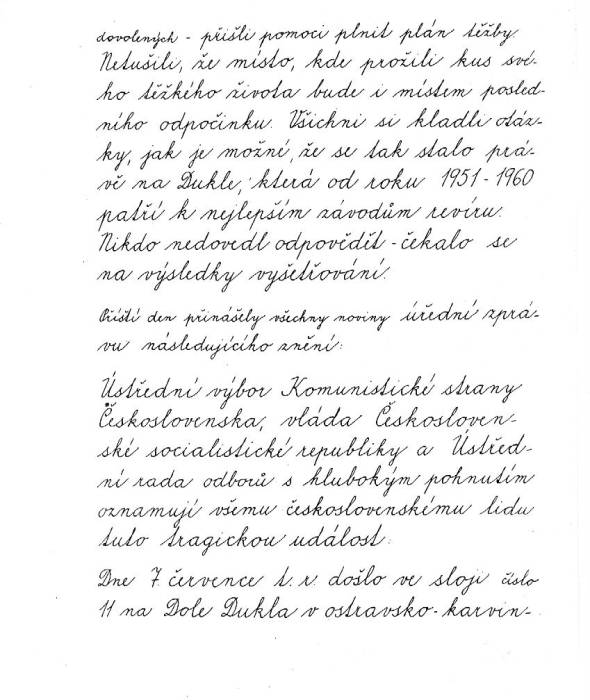 dovolených - přišli pomoci plnit plán těžby.
Netušili, že místo, kde prožili kus své-
ho těžkého života bude i místem posled-
ního odpočinku. Všichni si kladli otáz-
ky, jak je možné, že se tak stalo prá-
vě na Dukle, která od roku 1951-1960
patří k nejlepším závodům revíru.
Nikdo nedovedl odpovědět - čekalo se
na výsledky vyšetřování.
Příští den přinášely všechny noviny úřední zprá-
vu následujícího znění:
Ústřední výbor Komunistické strany
Československa, vláda Českosloven-
ské socialistické republiky a Ústřed-
ní rada odborů s hlubokým pohnutím
oznamují všemu československému lidu
tuto tragickou událost:
Dne 7. července t. r. došlo ve sloji číslo
11 na Dole Dukla v ostravsko-karvin-